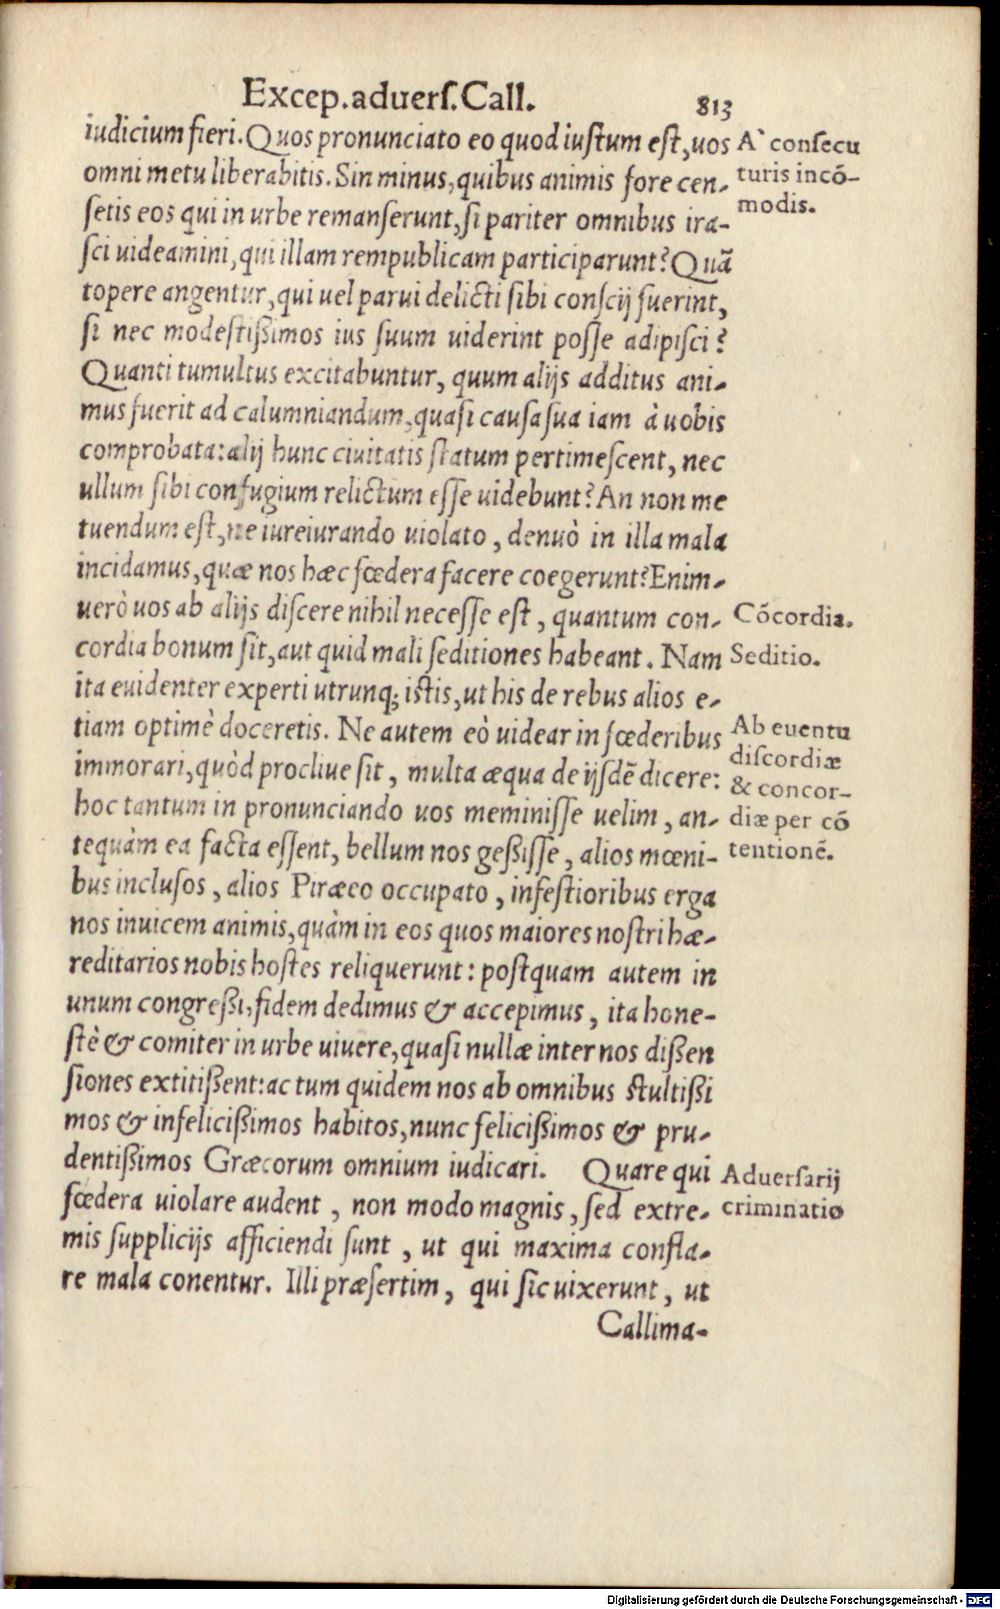 Excep.aduerſ.Call. 813
iudicium fieri. Quos pronunciato eo quod iuſtum eſt, uos
omni metu liberabitis. Sin minus, quibus animis fore cen-
ſetis eos qui in urbe remanſerunt, ſi pariter omnibus ira-
ſci uideamini, qui illam rempublicam participarunt? Quā
topere angentur, qui uel parui delicti ſibi conſcij fuerint,
ſi nec modeſtißimos ius ſuum uiderint poſſe adipiſci?
Quanti tumultus excitabuntur, quum alijs additus ani-
mus fuerit ad calumniandum, quaſi cauſa ſua iam à uobis
comprobata: alij hunc ciuitatis ſtatum pertimeſcent, nec
ullum ſibi confugium relictum eſſe uidebunt? An non me
tuendum eſt, ne iureiurando uiolato, denuò in illa mala
incidamus, quæ nos hæc fœdera facere coegerunt? Enim-
uerò uos ab alijs diſcere nihil neceſſe eſt, quantum con-
cordia bonum ſit, aut quid mali ſeditiones habeant. Nam
ita euidenter experti utrunq; iſtis, ut his de rebus alios e-
tiam optimè doceretis. Ne autem eò uidear in fœderibus
immorari, quòd procliue ſit, multa æqua de ijſdē dicere:
hoc tantum in pronunciando uos meminiſſe uelim, an-
tequàm ea facta eſſent, bellum nos geßiſſe, alios mœni-
bus incluſos, alios Piræeo occupato, infeſtioribus erga
nos inuicem animis, quàm in eos quos maiores noſtri hæ-
reditarios nobis hoſtes reliquerunt: poſtquam autem in
unum congreßi, fidem dedimus & accepimus, ita hone-
ſtè & comiter in urbe uiuere, quaſi nullæ inter nos dißen
ſiones extitißent: ac tum quidem nos ab omnibus ſtultißi
mos & infelicißimos habitos, nunc felicißimos & pru-
dentißimos Græcorum omnium iudicari. Quare qui
fœdera uiolare audent, non modo magnis, ſed extre-
mis ſupplicijs afficiendi ſunt, ut qui maxima confla-
re mala conentur. Illi præſertim, qui ſic uixerunt, ut
Callima-
A` conſecu
turis incō-
modis.
Cōcordia.
Seditio.
Ab euentu
diſcordiæ
& concor-
diæ per cō
tentionē.
Aduerſarij
criminatio
Digitalisierung gefördert durch die Deutsche Forschungsgemeinschaft - DFG